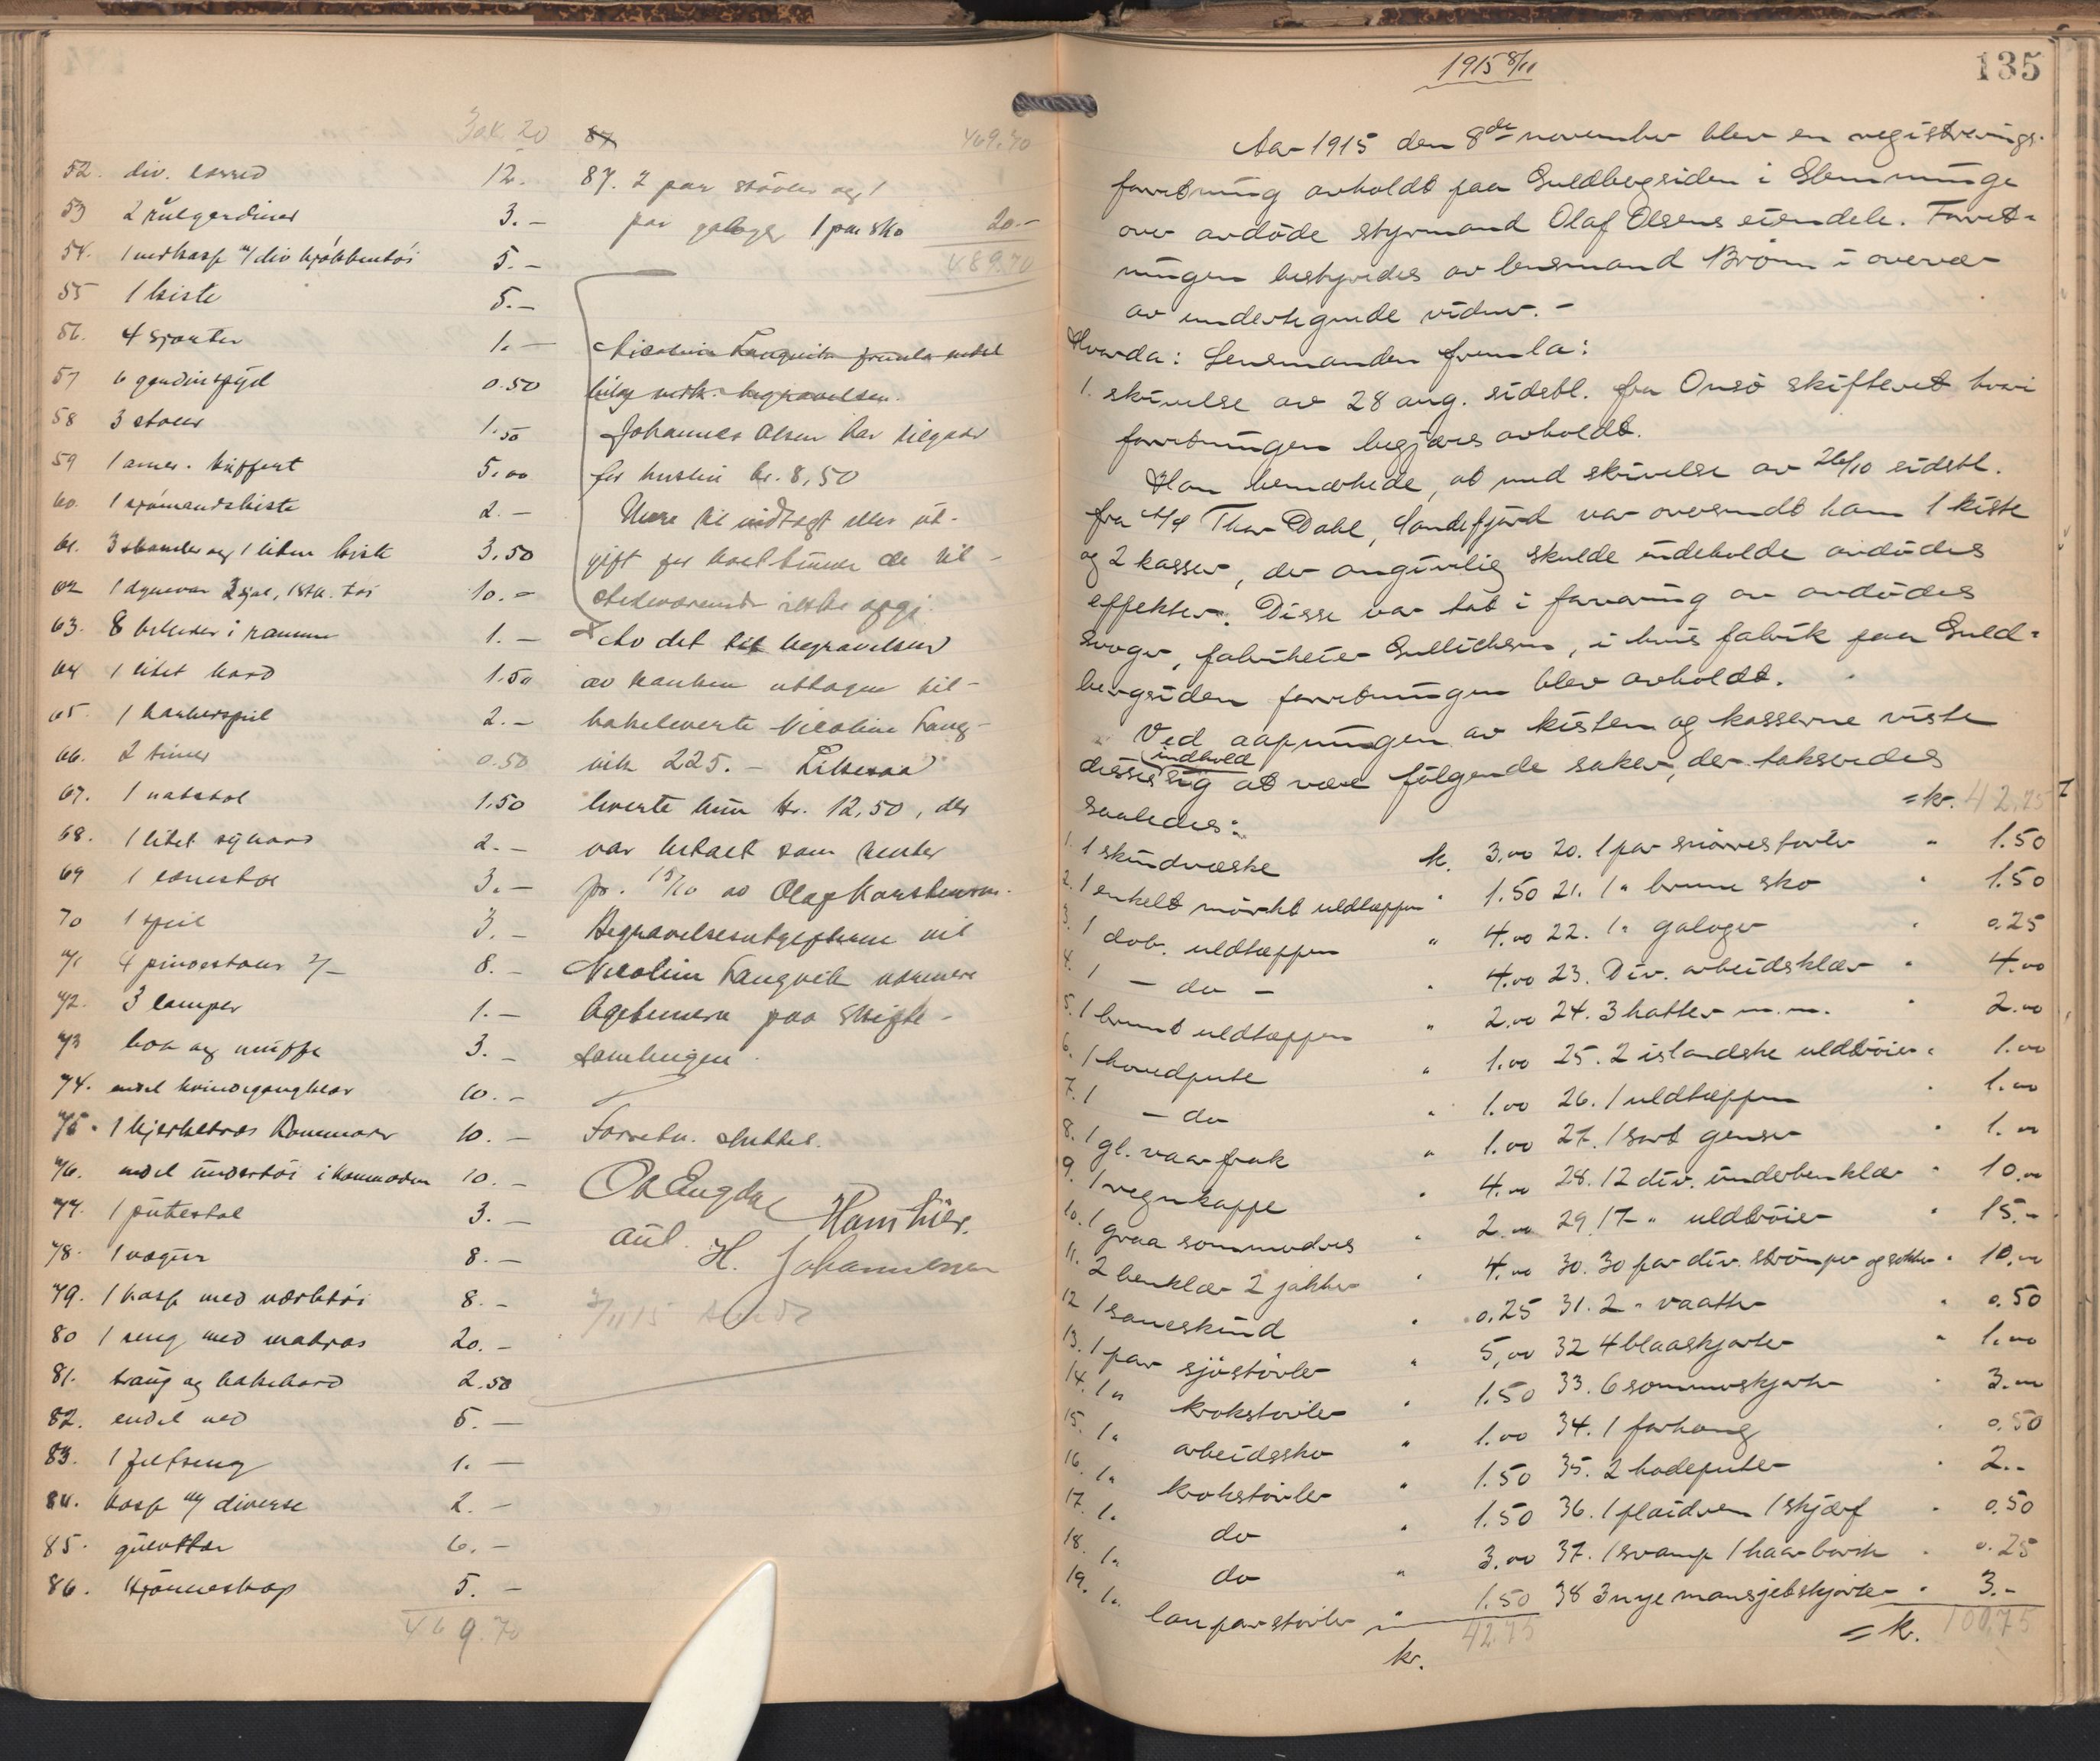 301.20
52. div. lerred 12.
53 2 rulgardiner 3.–
54. 1 medkasse m/ div kjøkkentøi 5.–
55 1 kiste 5.–
56. 4 sporter 1.–
57 6 gardinspyd 0.50
58 3 stoler 1.50
59 1 amer. kuffert 5.00
60. 1 sjømandskiste 2.–
61. 3 skamler og 1 liten kiste 3.50
62 1 dynevar 2 sjal, 1 stk. tøi 10.–
63. 8 billeder i ramme 1.–
64 1 litet bord 1.50
65. 1 hakkespil 2.–
66. 2 tiner 0.50
67. 1 natstol 1.50
68. 1 litet sybord 2.–
69 1 lænestol 3.–
70 1 speil 3.–
71 4 pindestoler 2/– 8.–
72. 3 lamper 1.–
73 boa og muffe 3.–
74. endel kvindegangklær 10.–
75. 1 bjerketræs Kommode 10.–
76. endel undertøi i kommoden 10.–
77. 1 putestol 3.–
78. 1 vogur 8.–
79. 1 kasse med værktøi 8.–
80 1 seng med madras 20.–
81. traug og bakebord 2.50
82. endel ved 5.–
83. 1 feltseng 1.–
84. kasse m/ diverse 2.–
85. gulvtter 6.–
86. Hjørneskap 5.–
469.70
87 469.70
87. 2 par støvler og 1
par galoger 1 par sko 20.–
489.70
Nicoline Langvik fremla endel
bilag vedk. begravelsen.
Johannes Olsen har tilgode
for husleie kr. 8,50
Mere til indtægt eller ut-
gift for boet kunde de til-
stedeværende ikke opgi.
Av det til begravelsen
av banken uttagne til-
bakeleverte Nicoline Lang-
vik 225.– Likesaa
leverte hun kr. 12,50, der
var betalt som renter
pr. 15/10 av Olaf Karstensen.
Begravelsesutgifterne vil
Nicoline Langvik nærmere
opgi paa skifte-
samlingen.
Forretn. sluttet.
Ole Engdal Hans Lier.
aut. H. Johannessen
7/11 15 sendt
1915 8/11
135
Aar 1915 den 8de november blev en registrerings-
forretning avholdt paa Guldbergsiden i Glemminge
over avdøde styrmand Olaf Olsens eiendele. Forret-
ningen bestyredes av lensmand Brørn i overvær
av undertegnede vidner.–
Hvorda: Lensmanden fremla:
1. skrivelse av 28 aug. sidstl. fra Onsø skifteret hvori
forretningen begjæres avholdt.
Han bemerkede, at med skrivelse av 26/10 sidstl.
fra A/S Thor Dahl, Sandefjord var oversendt ham 1 kiste
og 2 kasser, der angivelig skulde indeholde avdødes
effekter. Disse var tat i forvaring av avdødes
svoger, fabrikeier Gullichsen, i hvis fabrik paa Guld-
bergsiden forretningen blev avholdt.
Ved aapningen av kisten og kasserne viste
indhold
disses sig at være følgende saker, der takseredes
saaledes:
1. 1 skindvæske k. 3,00
2. 1 enkelt mørkt uldtæppe " 1.50
3. 1 dob. uldtæppe " 4.00
4. 1 – do – " 4.00
5. 1 brunt uldtæppe " 2.00
6. 1 hovedpute " 1.00
7. 1 – do " 1.00
8. 1 gl. vaarfrak " 1.00
9. 1 regnkappe " 4.00
10. 1 graa sommerdres " 2.00
11. 2 benklær 2 jakker " 4.00
12 1 saueskind " 0.25
13. 1 par sjøstøvler " 5,00
14. 1 " krokstøvler " 1.50
15. 1 " arbeidssko " 1.00
16. 1 " krokstøvler " 1.50
17. 1 " do " 1.50
18. 1 " do " 3.00
19. 1 " lauparstøvler " 1.50
kr. 42.75
= kr. 42.75
20. 1 par snørestøvler " 1.50
21. 1 " brune sko " 1.50
22. 1 " galoger " 0.25
23. Div. arbeidsklær " 4.00
24. 3 hatter m.m. " 2.00
25. 2 islandske uldtrøier " 1.00
26. 1 uldtæppe " 1.00
27. 1 sort genser " 1.00
28. 12 div. underbenklær " 10.00
29 17 " uldtrøier " 15.–
30. 30 par div. strømper og sokker " 10.00
31. 2 " vaatter " 0.50
32 4 blaaskjorter " 1.00
33. 6 sommerskjorter " 3.00
34. 1 forhæng " 0.50
35. 2 hodeputer " 2.–
36. 1 plaidrem 1 skjærf " 0.50
37. 1 svamp 1 haarbørste " 0.25
38 3 nye mansjetskjorter " 3.–
= k. 100,75